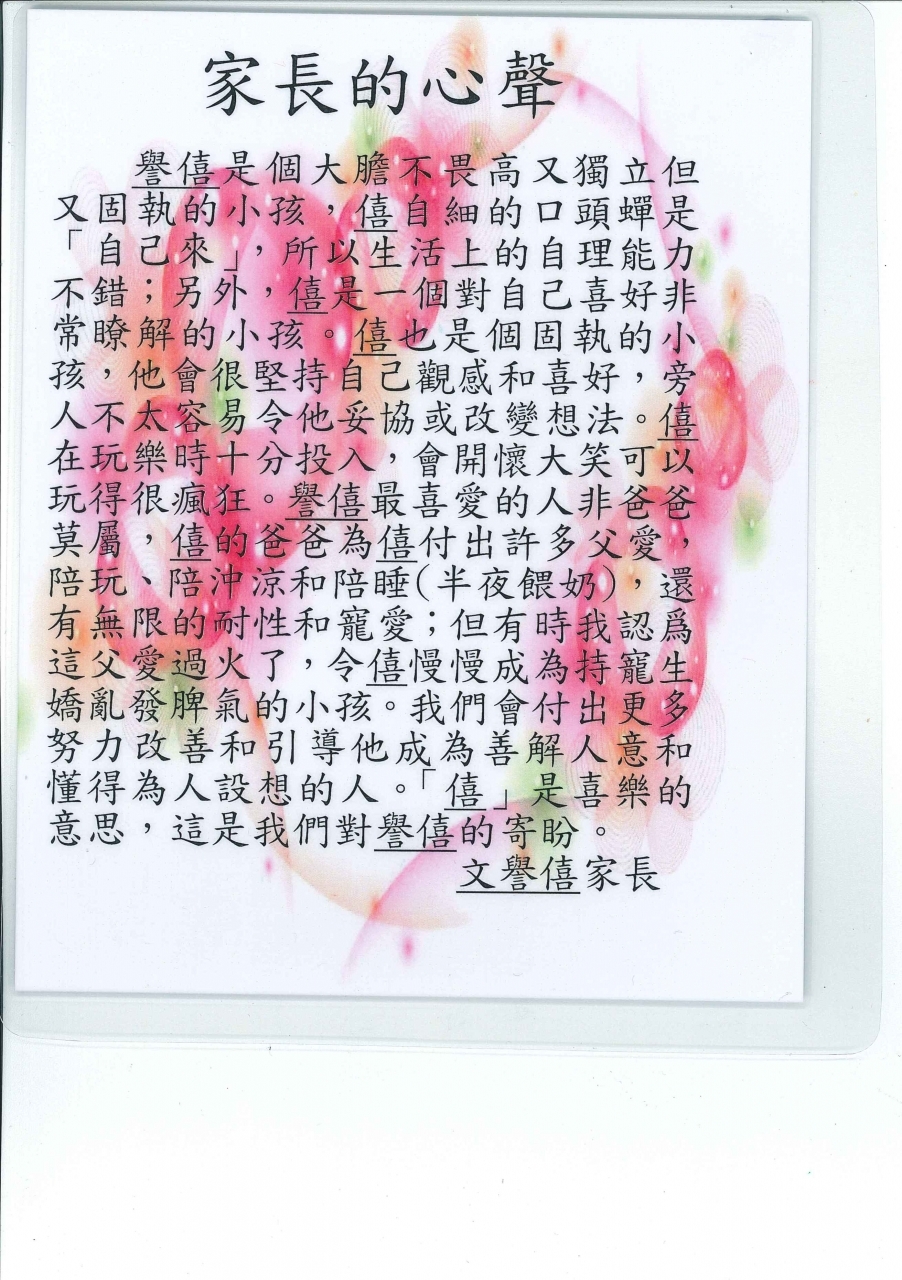 家長的心聲
譽僖是個大膽不畏高又獨立但
又固執的小孩，僖自細的口頭蟬是
「自己來」，所以生活上的自理能力
不錯；另外，僖是一個對自己喜好非
常瞭解的小孩。僖也是個固執的小
孩，他會很堅持自己觀感和喜好，旁
人不太容易令他妥協或改變想法。僖
在玩樂時十分投入，會開懷大笑可以
玩得很瘋狂。譽僖最喜愛的人非爸爸
莫屬，僖的爸爸為僖付出許多父愛，
陪玩、陪沖涼和陪睡(半夜餵奶)，還
有無限的耐性和寵愛；但有時我認爲
這父愛過火了，令僖慢慢成為持寵生
嬌亂發脾氣的小孩。我們會付出更多
努力改善和引導他成為善解人意和
懂得為人設想的人。「僖」是喜樂的
意思，這是我們對譽僖的寄盼。
文譽僖家長